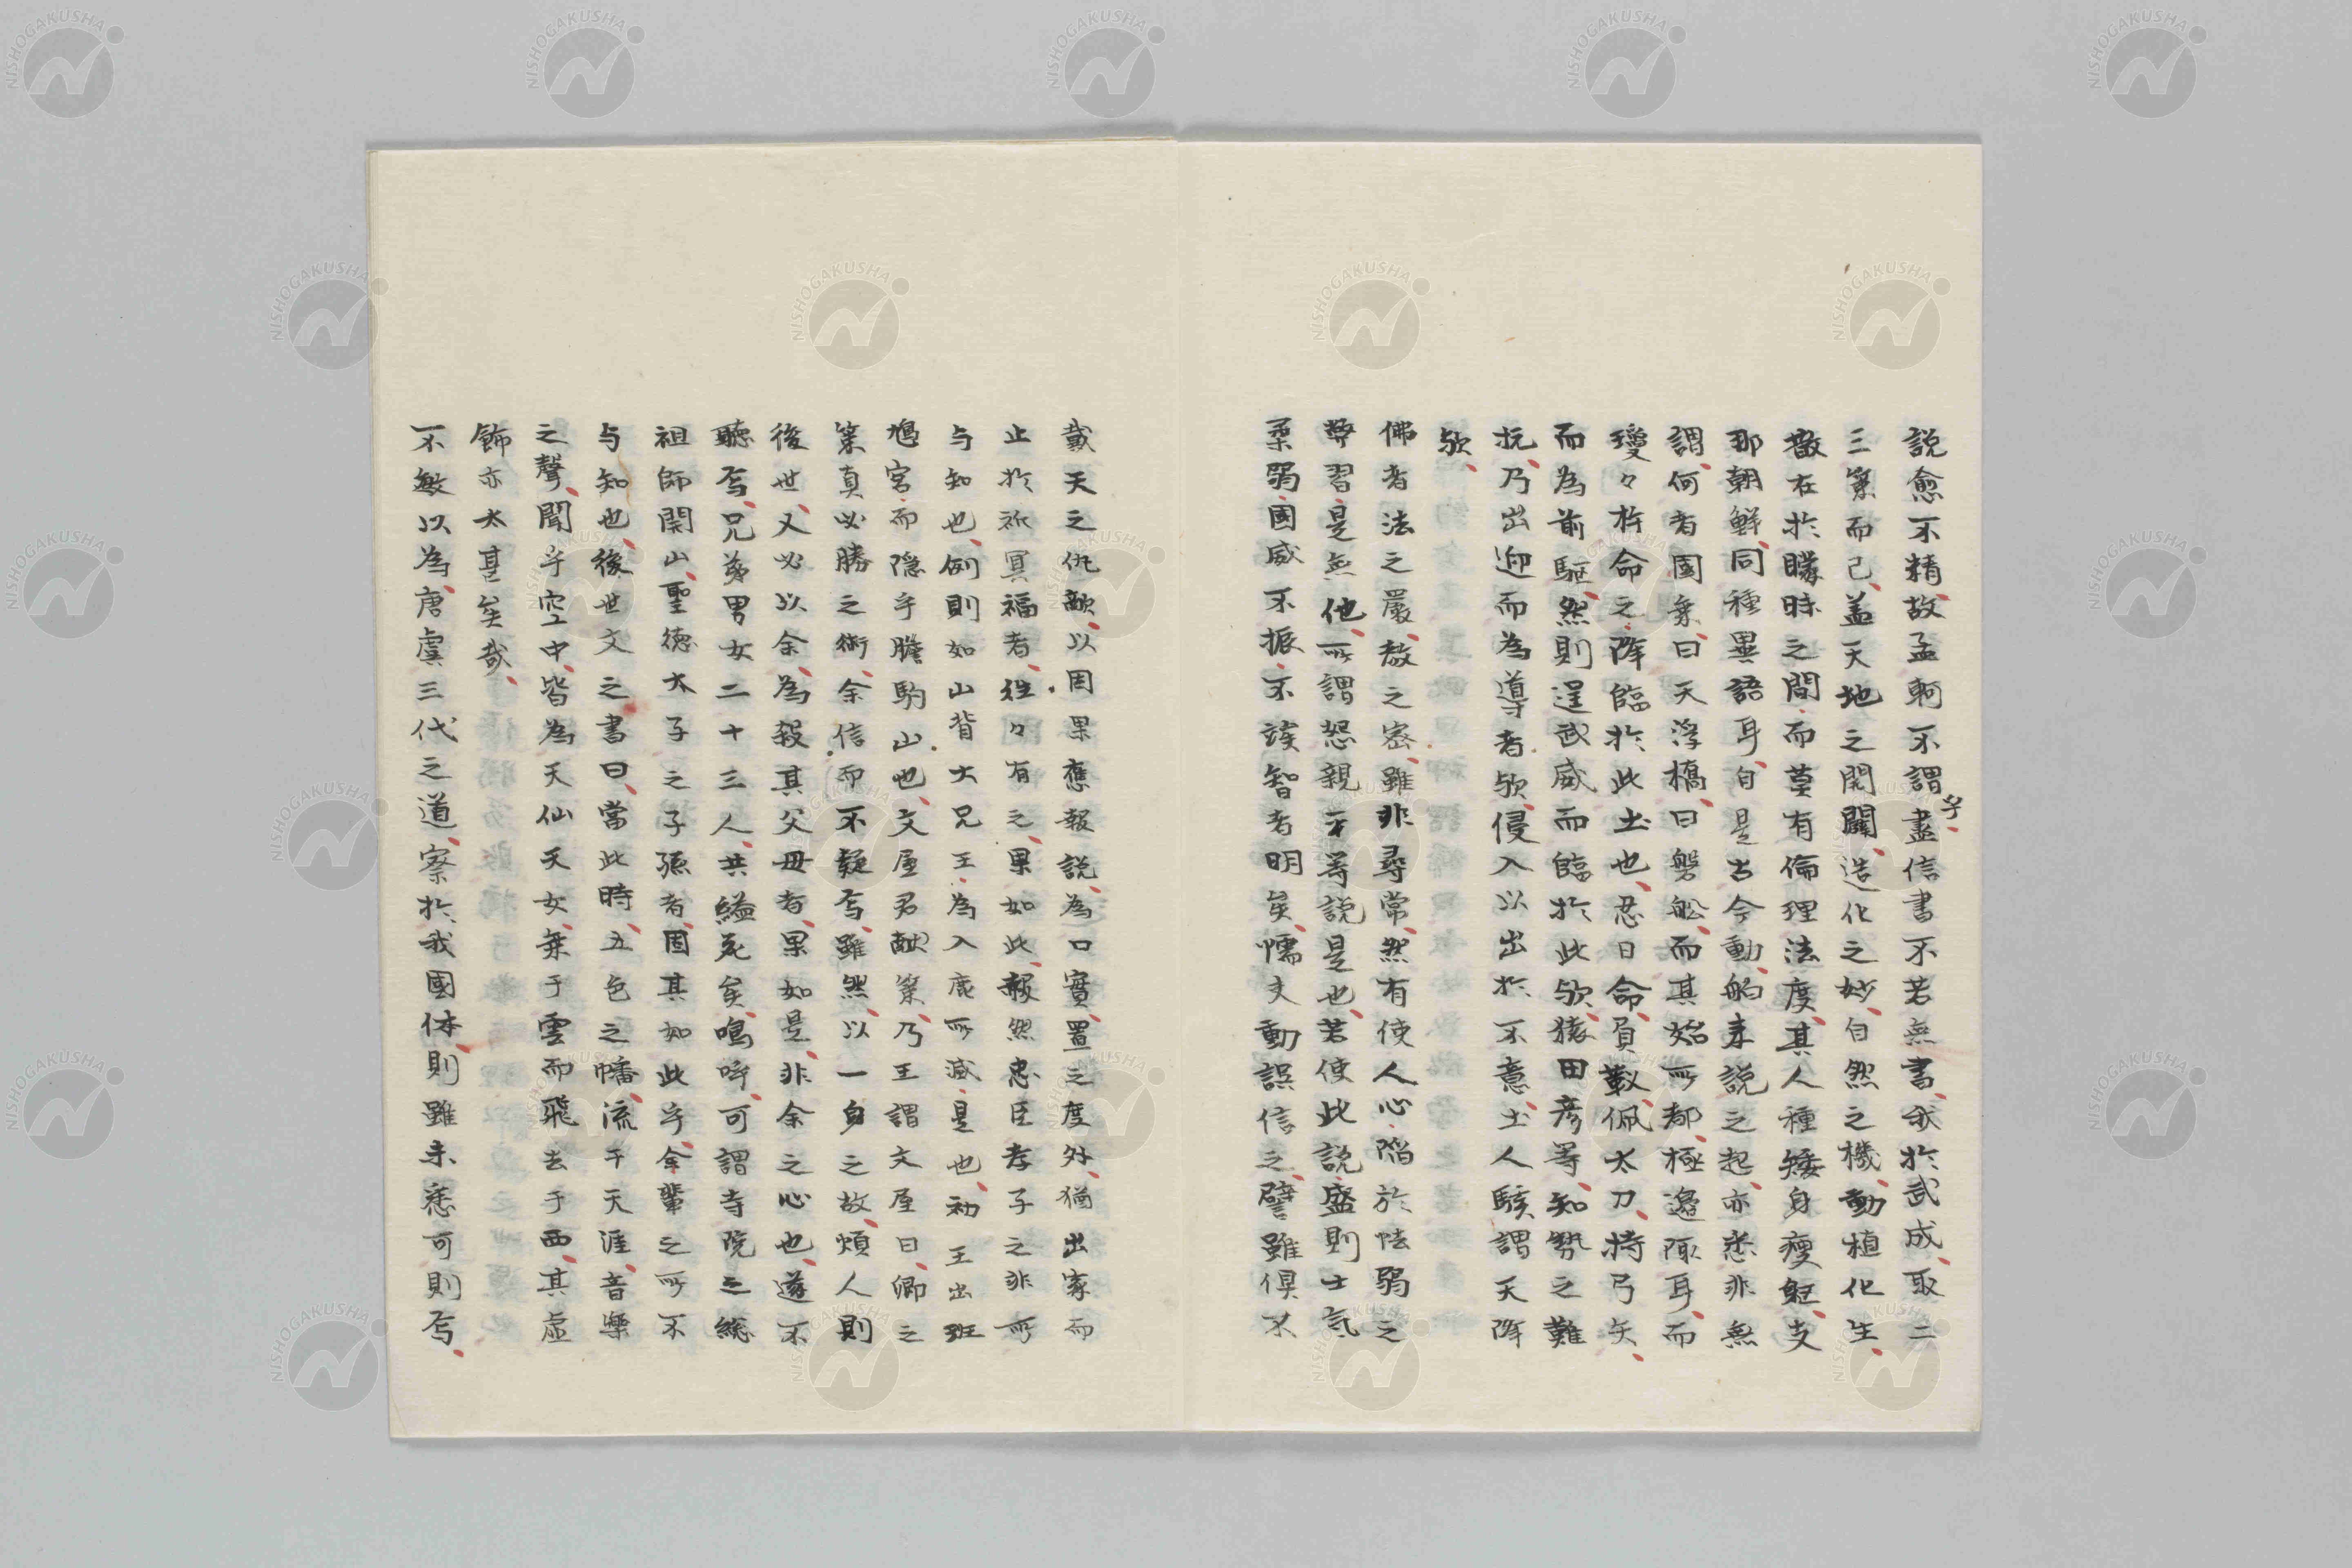 説愈不精故孟軻不謂乎盡信書不若無書我於武成取二
三策而已蓋天地之開闢造化之妙自然之機動植化生
散在於矇昧之間而莫有倫理法度其人種矮身瘦躯支
那朝鮮同種異語耳自是古今動舶来説之起亦悉非無
謂何者國乗曰天浮橋曰磐舩而其始所都極邊陬耳而
瓊々杵命之降臨於此土也忍日命負靫佩太刀持弓矢
而為前駆然則逞武威而臨於此欤猿田彦等知勢之難
抗乃出迎而為導者欤侵入以出於不意土人駭謂天降
欤
佛者法之嚴教之密雖非尋常然有使人心陥於怯弱之
弊習是無他所謂怨親平等説是也若使此説盛則士気
柔弱國威不振不竢智者明矣懦夫動誤信之譬雖倶不
戴天之仇敵以因果應報説為口實置之度外猶出家而
止於祈冥福者往々有之果如此報然忠臣孝子之非所
与知也例則如山背大兄王為入鹿所滅是也初王出班
鳩宮而隠乎膽駒山也文屋君献策乃王謂文屋曰卿之
策真必勝之術余信而不疑焉雖然以一身之故煩人則
後世又必以余為殺其父母者果如是非余之心也遂不
聴焉兄弟男女二十三人共縊死矣嗚呼可謂寺院之総
祖師開山聖徳太子之子孫者固其如此乎余輩之所不
与知也後世文之書曰當此時五色之幡流于天涯音樂
之聲聞乎空中皆為天仙天女乗于雲而飛去于西其虚
飾亦太甚矣哉
不敏以為唐虞三代之道察於我國体則雖未悉可則焉